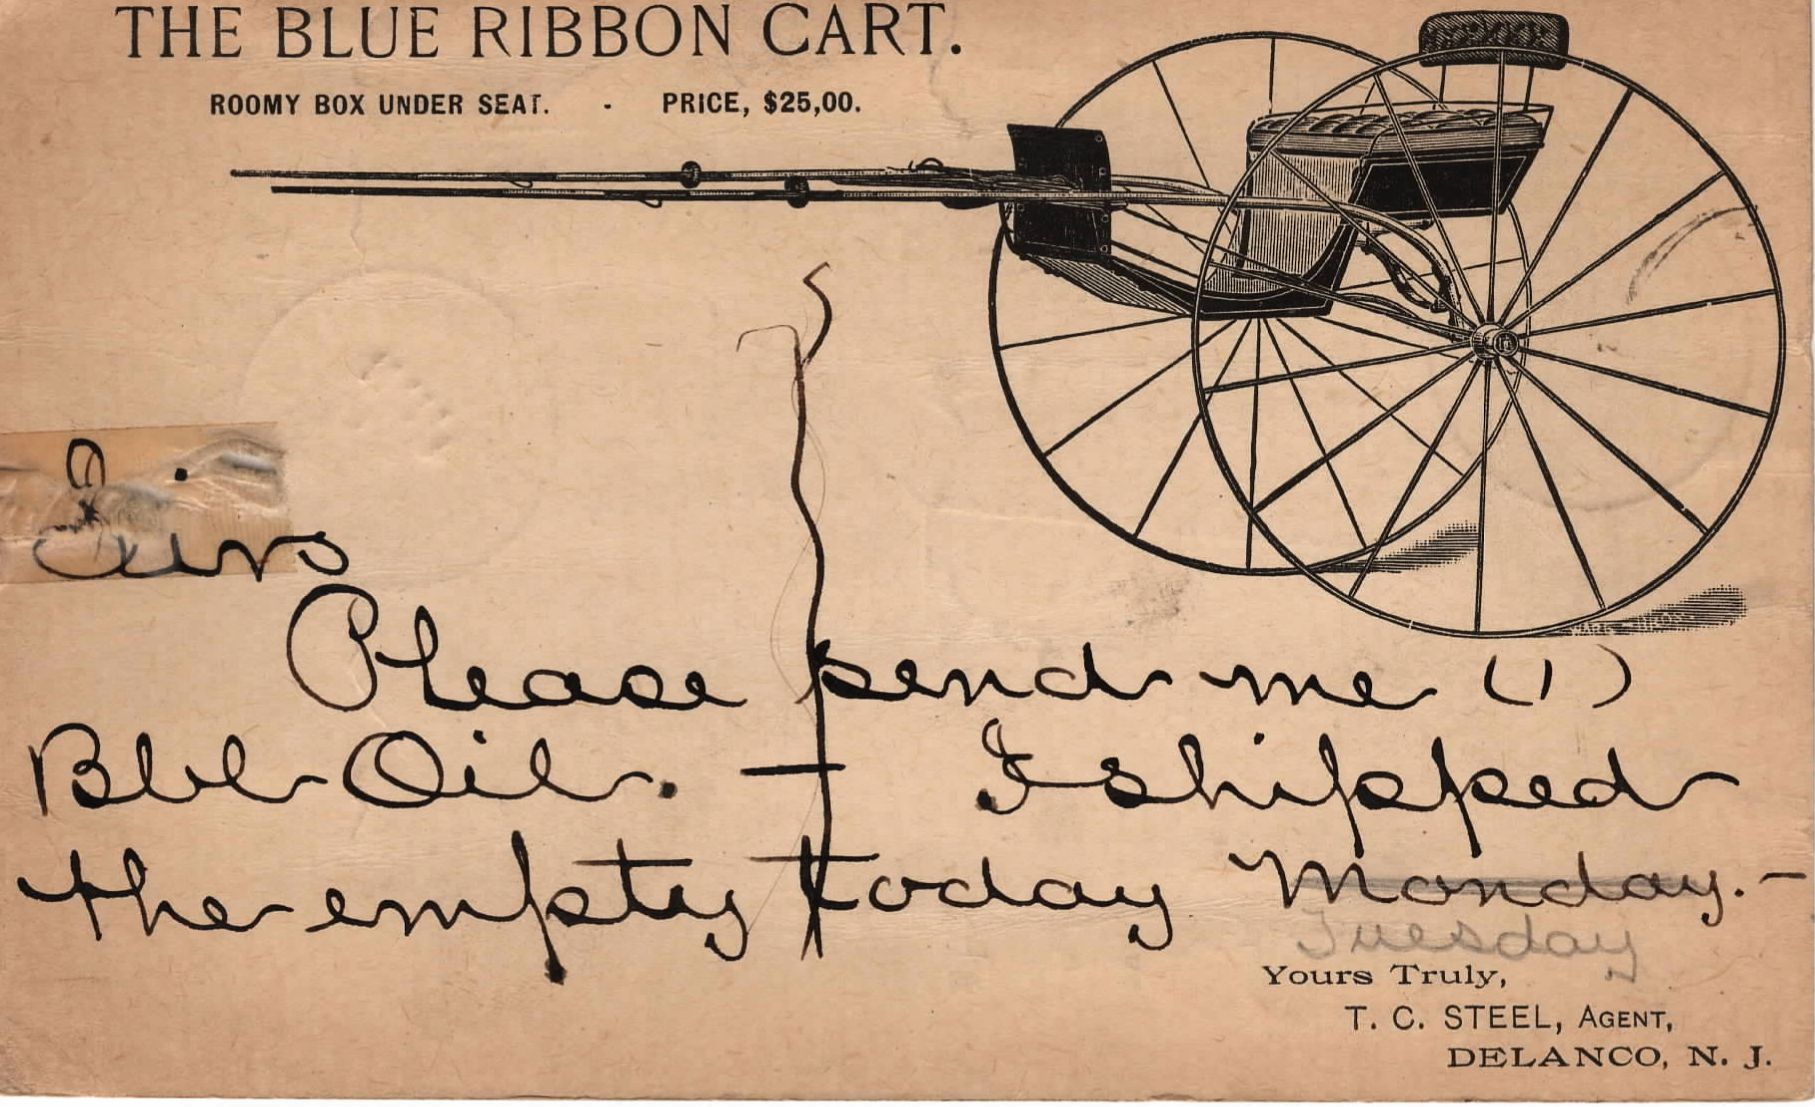 THE BLUE RIBBON CART.
ROOMY BOX UNDER SEAT. - PRICE, $25,00.
Sirs
Please send me (1)
Bbl Oil. — I shipped
the empty today Monday. —
Tuesday
Yours Truly,
T. C. STEEL, AGENT,
DELANCO, N. J.